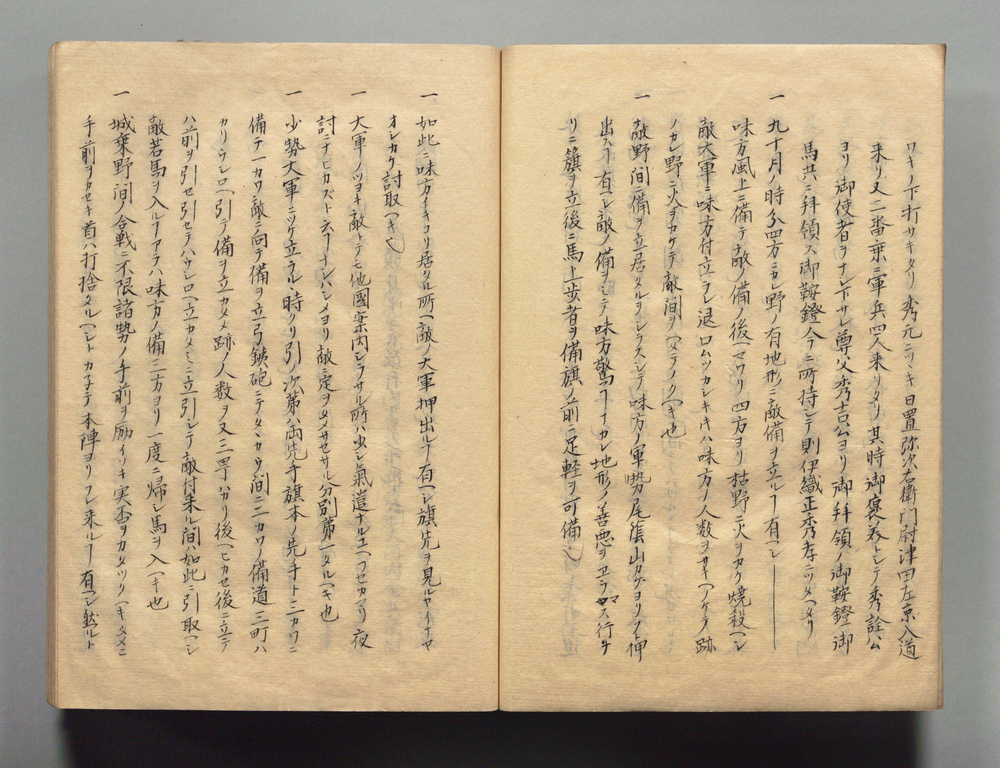 ワキノ下打サキタリ秀元ニツキ日置弥次右衛門尉津田左京入道
来リ又二番乗ニ軍兵四人来リタリ其時御褒美トシテ秀詮公
ヨリ御使者ヲナシ下サレ尊父秀吉公ヨリ御拝領ノ御鞍鐙御
馬共ニ拝領ス御鞍鐙今ニ所持シテ則伊織正秀孝ニツタヘタリ
一 九十月ノ時分四方ニカレ野ノ有地形ニ敵備ヲ立ルヿ有ヘシ
味方風上ニ備テ敵ノ備ノ後ヘセワリ四方ヨリ枯野ニ火ヲカケ焼殺ヘシ
敵大軍ニ味方付立ラレ退口ムツカシキキハ味方ノ人数ヲサキヘノケテ跡
ノカレ野ニ火ヲカケテ敵間ヲヘタテノクヘキ也
一 敵野間ニ備ヲ立居タルヲシラスシテ味方ノ軍勢尾陰山カゲヨリフト押
出スヿ有ヘシ敵ノ備ヲミテ味方驚クヿナカレ地形ノ善悪ヲヱラハス行チ
リニ籏ヲ立後ニ馬上歩者ヲ備旗ノ前ニ足軽ヲ可備也
一 如此ニ味方イキコリ居タル所ヘ敵ノ大軍押出ルヿ有ヘシ旗先ヲ見ルヤイナヤ
オレカケ討取ヘキ也
一 大軍ノツヨキ敵ニテモ他國案内シラサル所ハ少シ氣遣ナルユヘフセカマリ夜
討ニナヒカズト云フヿナシハシメヨリ敵ニ定ヲタメサセサル分別第一タルヘキ也
一 少勢大軍ニツケ立ラルヽ時クリ引ノ次第ハ両先手旗本ノ先手トニカワニ
備テ一カワ敵ニ向テ備ヲ立弓鉄砲ニテタヽカウ間ニ二カワノ備道二三町ハ
カリウシロヘ引テ備ヲ立カタメ跡ノ人数ヲ又三四町分リ後ヘヒカセ後ニ立テ
ハ前ヲ引セ引セテハウシロヘ立カタメミニ立引シテ敵付来ル間ハ如此ニ引取ヘシ
敵若馬ヲ入ルヿアラハ味方ノ備二方ヨリ一度ニ帰シ馬ヲ入ヘキ也
一 城乗野間ノ合戦ニ不限諸勢ノ手前ヲ励イソキ実否ヲカタツクヘキタメニ
手前ヲカセキ首ハ打捨タルヘシトカネテ本陣ヨリフレ来ルヿ有ヘシ然ルト